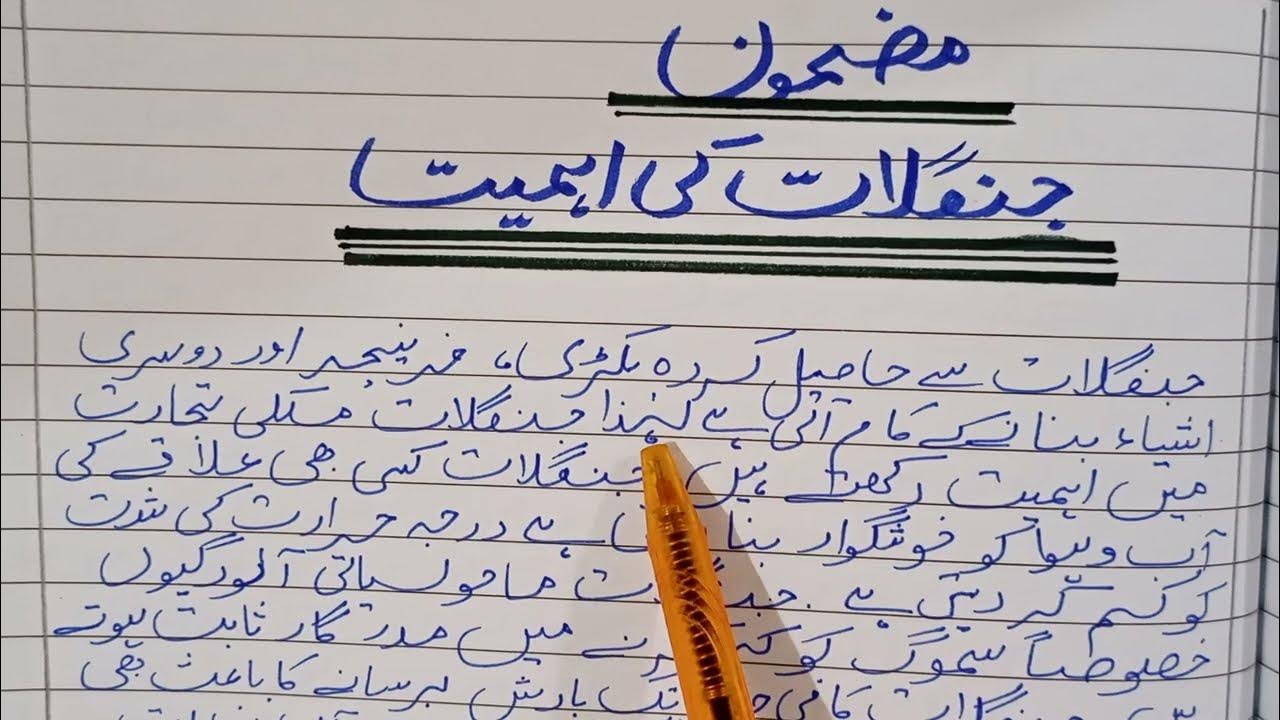 مضمون
جنگلات کی اہمیت
جنگلات سے حاصل کردہ لکڑی، فرنیچر اور دوسری
اشیاء بنانے کے کام آتی ہے لہٰذا جنگلات ملکی تجارت
میں اہمیت رکھتے ہیں جنگلات کسی بھی علاقے کی
آب و ہوا کو خوشگوار ہے درجہ حرارت کی شدت
کو کم کر دیتی ہے۔ ماحولیاتی آلودگیوں
خصوصاً سموگ کو میں مددگار ثابت ہوتے
کافی بارش برسانے کا باعث بھی